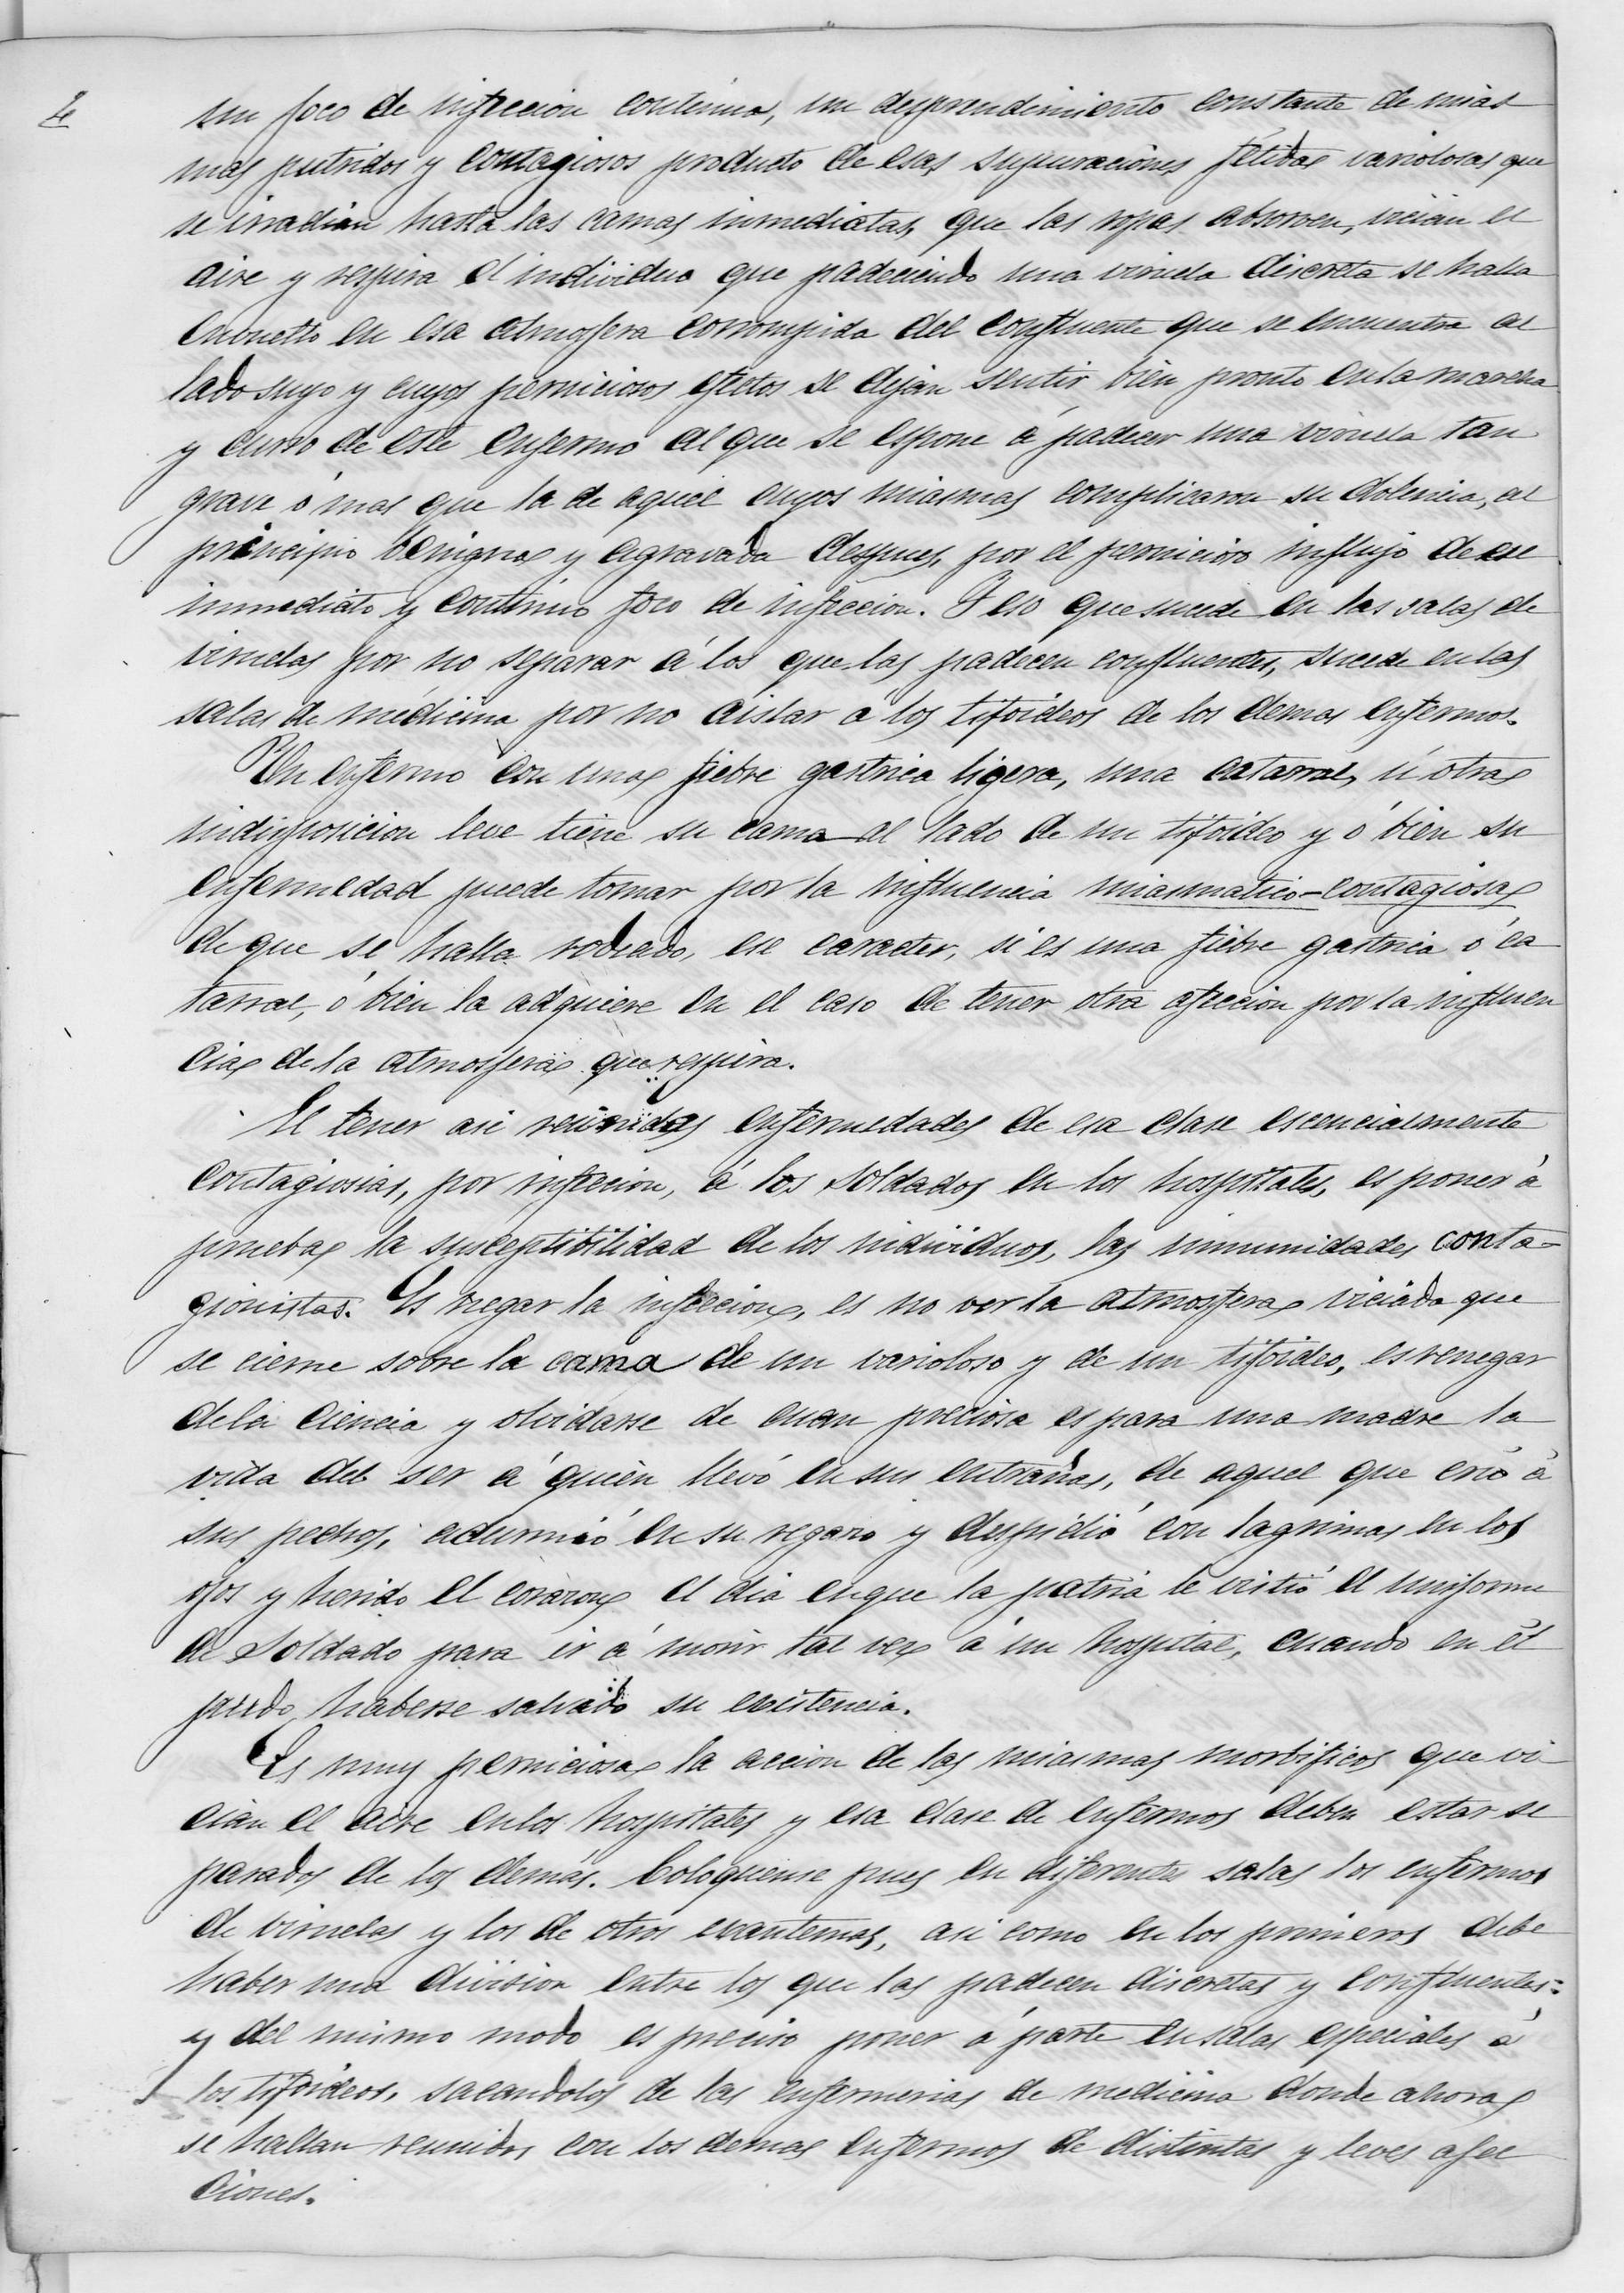 un foco de infeccion contínuo, un desprendimiento constante de mias
mas putridos y contagiosos producto de esas supuraciones fétidas variolosas que
se irradian hasta las camas inmediatas, que las ropas absorven, vician el
aire y respira el individuo que padeciendo una viruela discreta se halla
envuelto en esa atmosfera corrompida del confluente que se encuentra al
lado suyo y cuyos perniciosos efectos se dejan sentir bien pronto en la marcha
y curso de este enfermo al que se espone á padecer una viruela tan
grave ó mas que la de aquel cuyos miasmas complicaron su dolencia, al
principio benigna y agravada despues, por el pernicioso influjo de ese
inmediato y contínuo foco de infeccion. Y eso que sucede en las salas de
viruelas por no separar á los que las padecen confluentes, sucede en las
salas de medicina por no aislar á los tifoideos de los demas enfermos.
Un enfermo con una fiebre gastrica ligera, una catarral, ú otra
indisposicion leve tiene su cama al lado de un tifoideo y ó bien su
enfermedad puede tomar por la influencia miasmatico-contagiosa
de que se halla rodeado, ese caracter, si es una fiebre gastrica ó ca
tarral, ó bien la adquiere en el caso de tener otra afeccion por la influen
cia de la atmosfera que respira.
El tener asi reunidas enfermedades de esa clase escencialmente
contagiosas, por infeccion, á los soldados en los hospitales, es poner á
prueba la susceptibilidad de los individuos, las inmunidades conta-
gionistas. Es negar la infeccion, es no ver la atmosfera viciada que
se cierne sobre la cama de un varioloso y de un tifoideo, es renegar
de la ciencia y olvidarse de cuan preciosa es para una madre la
vida del ser á quien llevó en sus entrañas, de aquel que crió á
sus pechos, adurmió en su regazo y despidió con lagrimas en los
ojos y herido el corazon el dia en que la patria le vistió el uniforme
de soldado para ir á morir tal vez á un hospital, cuando en él
pudo haberse salvado su existencia.
Es muy perniciosa la accion de las miasmas morbificos que vi
cian el aire en los hospitales y esa clase de enfermos deben estar se
parados de los demás. Coloquense pues en diferentes salas los enfermos
de viruelas y los de otros exantemas, asi como en los primeros debe
haber una division entre los que las padecen discretas y confluentes:
y del mismo modo es preciso poner á parte en salas especiales á
los tifoideos, sacandolos de las enfermerias de medicina donde ahora
se hallan reunidos con los demas enfermos de distintas y leves afec
ciones.